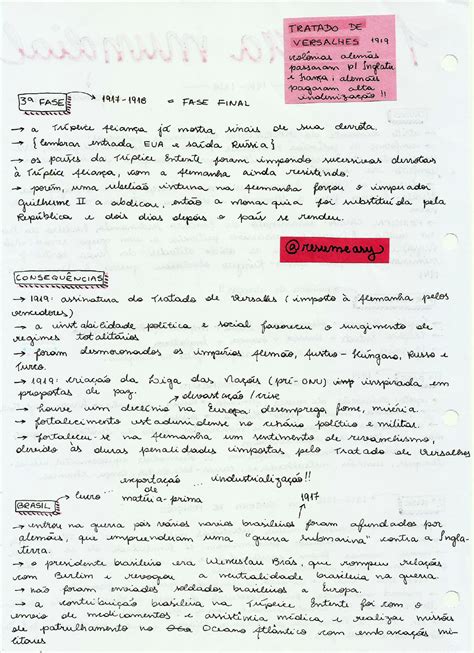 TRATADO DE
VERSALHES 1919
colônias alemãs
passaram p/ Inglate
e França; alemães
pagaram alta
indenização!!
3ª FASE → 1917-1918 = FASE FINAL
→ a Tríplice Aliança já mostra sinais de sua derrota.
→ {lembrar entrada EUA e saída Rússia}
→ os países da Tríplice Entente foram impondo sucessivas derrotas
à Tríplice Aliança, com a Alemanha ainda resistindo.
→ porém, uma rebelião interna na Alemanha forçou o imperador
Guilherme II a abdicar, então a monarquia foi substituída pela
República e dois dias depois o país se rendeu.
@resumeasy
CONSEQUÊNCIAS
→ 1919: assinatura do Tratado de Versales (imposto à Alemanha pelos
vencedores)
→ a instabilidade política e social favoreceu o surgimento de
regimes totalitários
→ foram desmoronados os impérios Alemão, Austro-Húngaro, Russo e
Turco.
→ 1919: criação da Liga das Nações (pré-ONU) imp inspirada em
propostas de paz.
devastação/crise
→ houve um declínio na Europa desemprego, fome, miséria.
→ fortalecimento estadunidense no cenário político e militar.
→ fortaleceu-se na Alemanha um sentimento de revanchismo,
devido às duras penalidades impostas pelo Tratado de Versalhes
exportação industrialização!!
lucro de
matéria-prima 1917
BRASIL
→ entrou na guerra pós vários navios brasileiros foram afundados por
alemães, que empreenderam uma "guerra submarina" contra a Ingla-
terra.
→ o presidente brasileiro era Wenceslau Brás, que rompeu relações
com Berlim e revogou a neutralidade brasileira na guerra.
→ não foram enviados soldados brasileiros a Europa.
→ a contribuição brasileira na Tríplice Entente foi com o
envio de medicamentos e assistência médica e realizou missões
de patrulhamento no Oceano Atlântico com embarcações mi-
litares